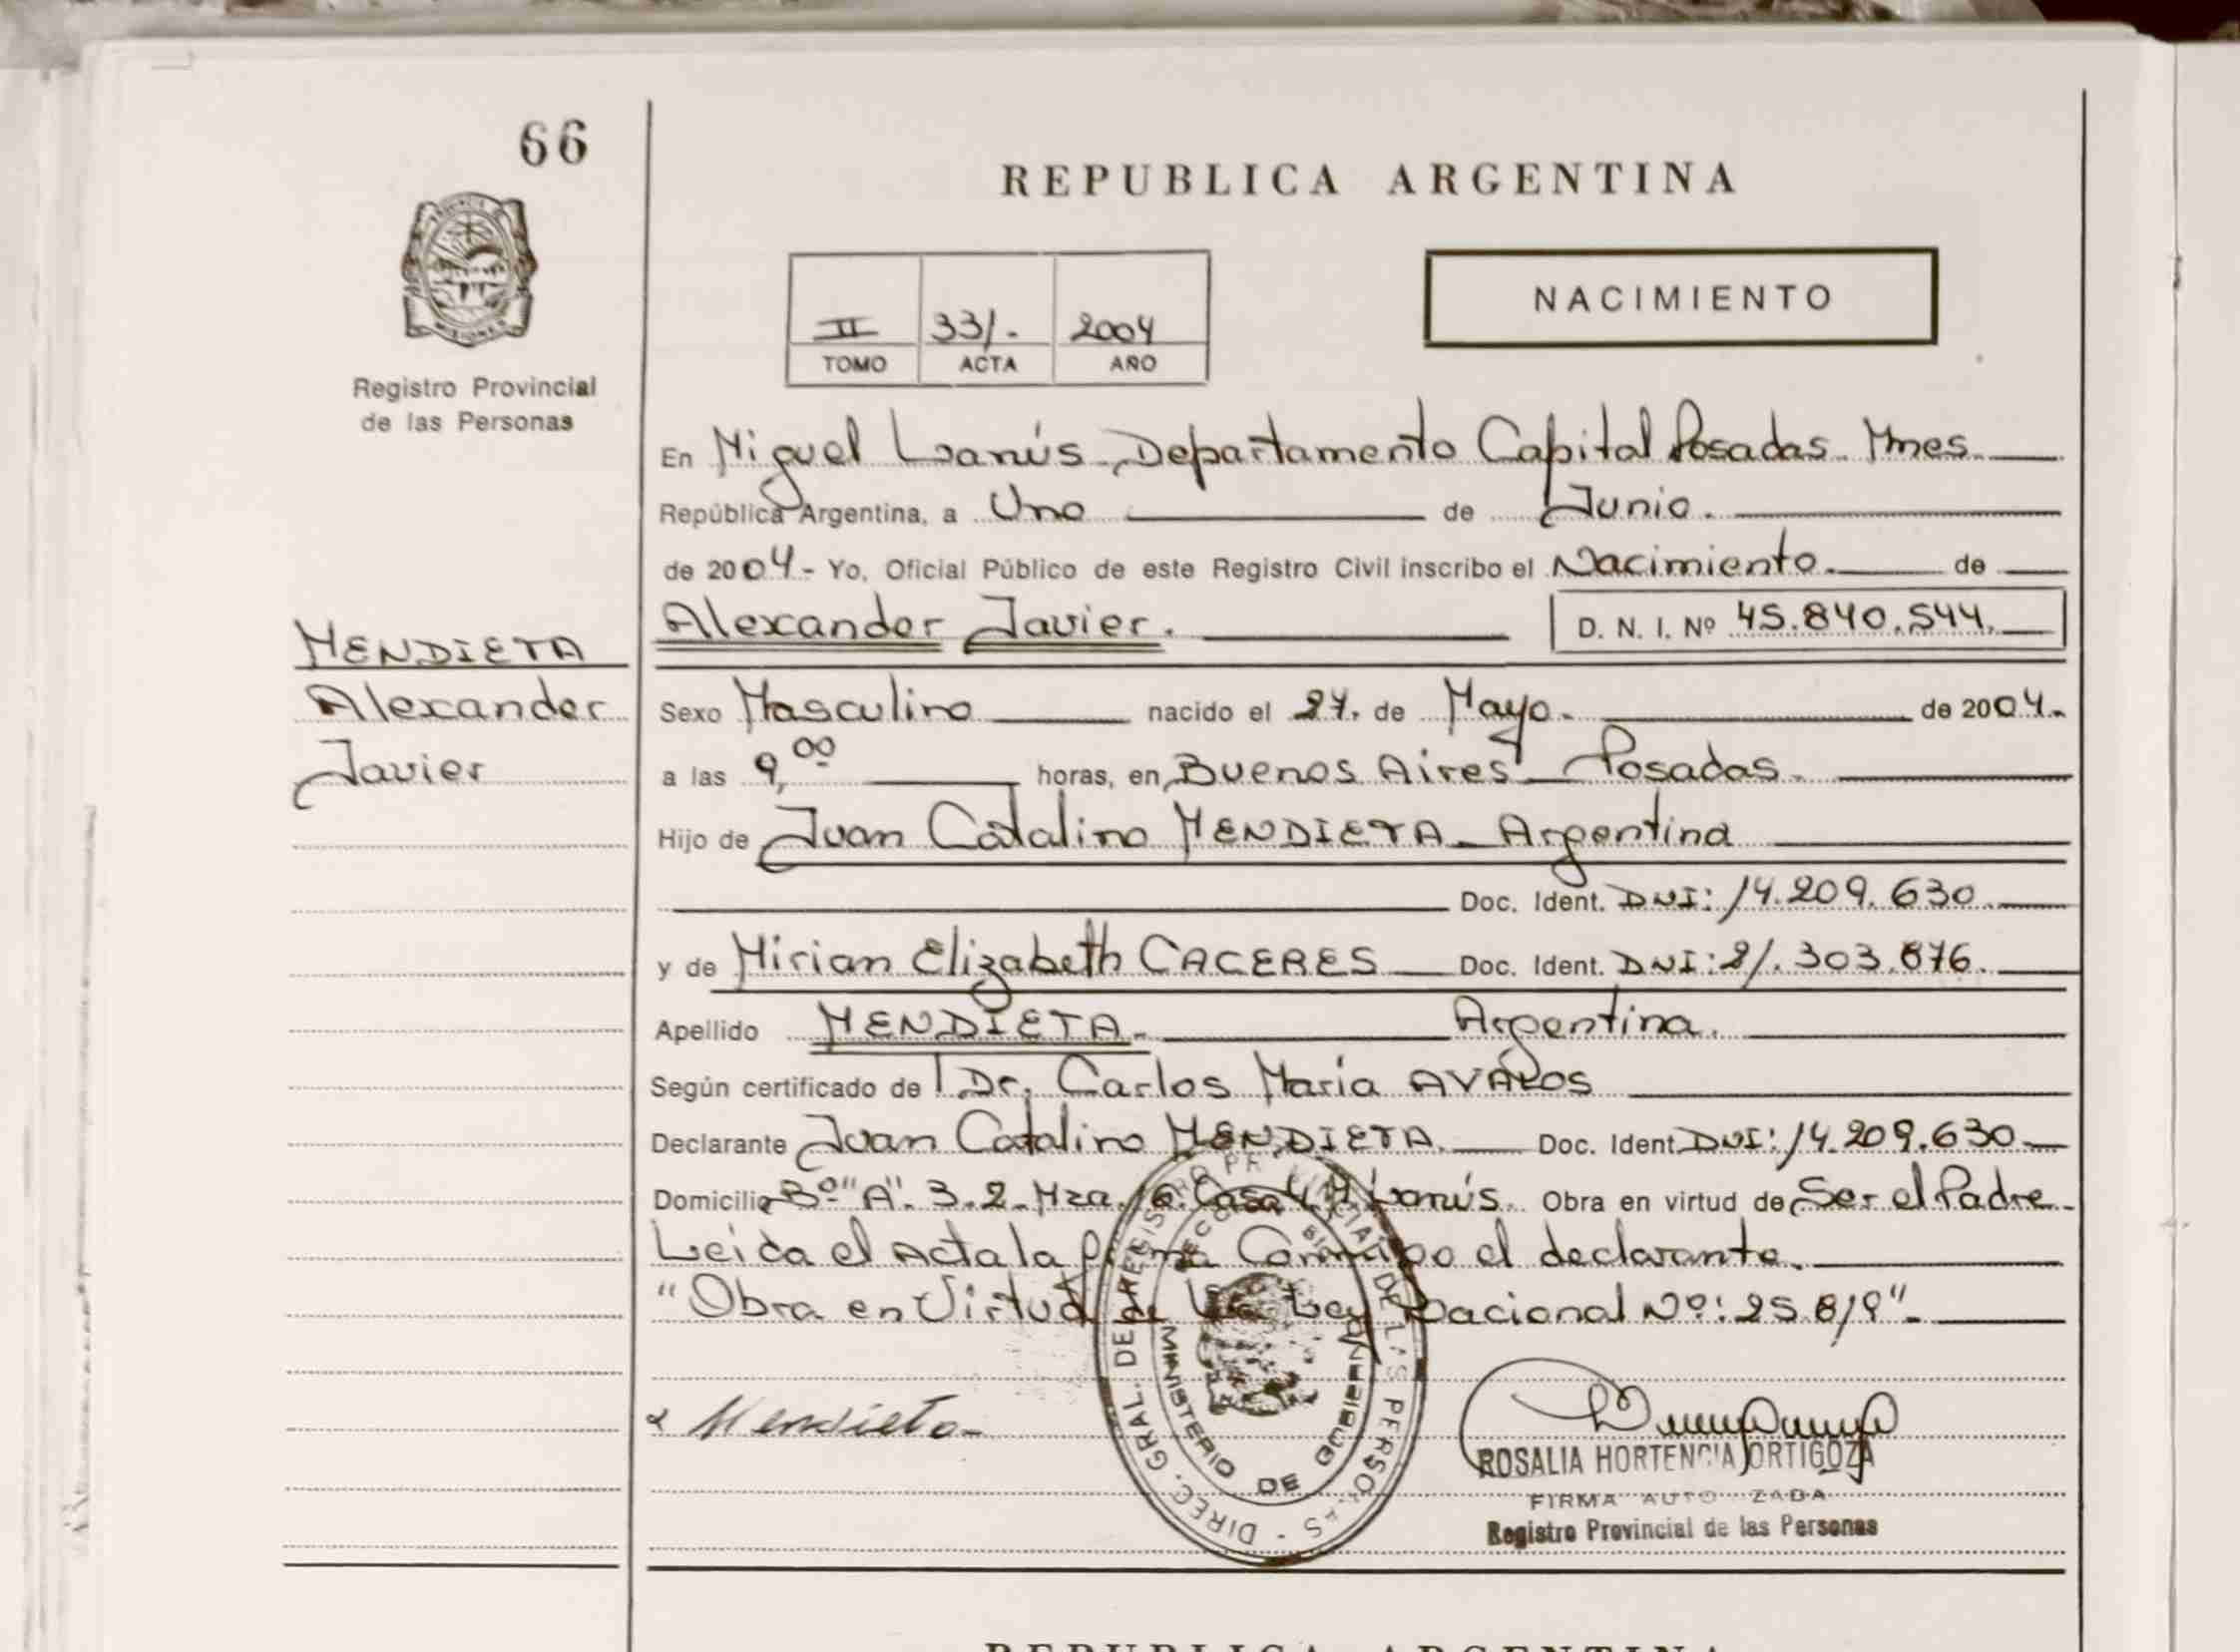 66
REPUBLICA ARGENTINA
NACIMIENTO
II 33/- 2004
TOMO ACTA AÑO
Registro Provincial
de las Personas
En Miguel Lanús Departamento Capital Posadas Mnes
República Argentina, a Uno de Junio.
de 2004- Yo, Oficial Público de este Registro Civil inscribo el Nacimiento. de
Alexander Javier. D. N. I. Nº 45.840.544.
MENDIETA
Alexander
Javier
Sexo Masculino nacido el 27. de Mayo. de 2004.
a las 9,00 horas, en Buenos Aires Posadas.
Hijo de Juan Catalino MENDIETA Argentina
Doc. Ident. DNI: 14.209.630
y de Mirian Elizabeth CACERES Doc. Ident. DNI: 21.303.876.
Apellido MENDIETA. Argentina.
Según certificado de Dr. Carlos María AVALOS
Declarante Juan Catalino MENDIETA. Doc. Ident. DNI: 14.209.630
Domicilio Bº "A". 3.2. Mza. 16. Casa 4 M Lanús. Obra en virtud de Ser el Padre
Leida el Acta la firma Conmigo el declarante.
"Obra en Virtud de la Ley Nacional Nº: 25.819"
Mendieta
DIREC. GRAL. DE REGISTRO PROVINCIAL DE LAS PERSONAS
MINISTERIO DE GOBIERNO
ROSALIA HORTENCIA ORTIGOZA
FIRMA AUTORIZADA
Registro Provincial de las Personas
REPUBLICA ARGENTINA